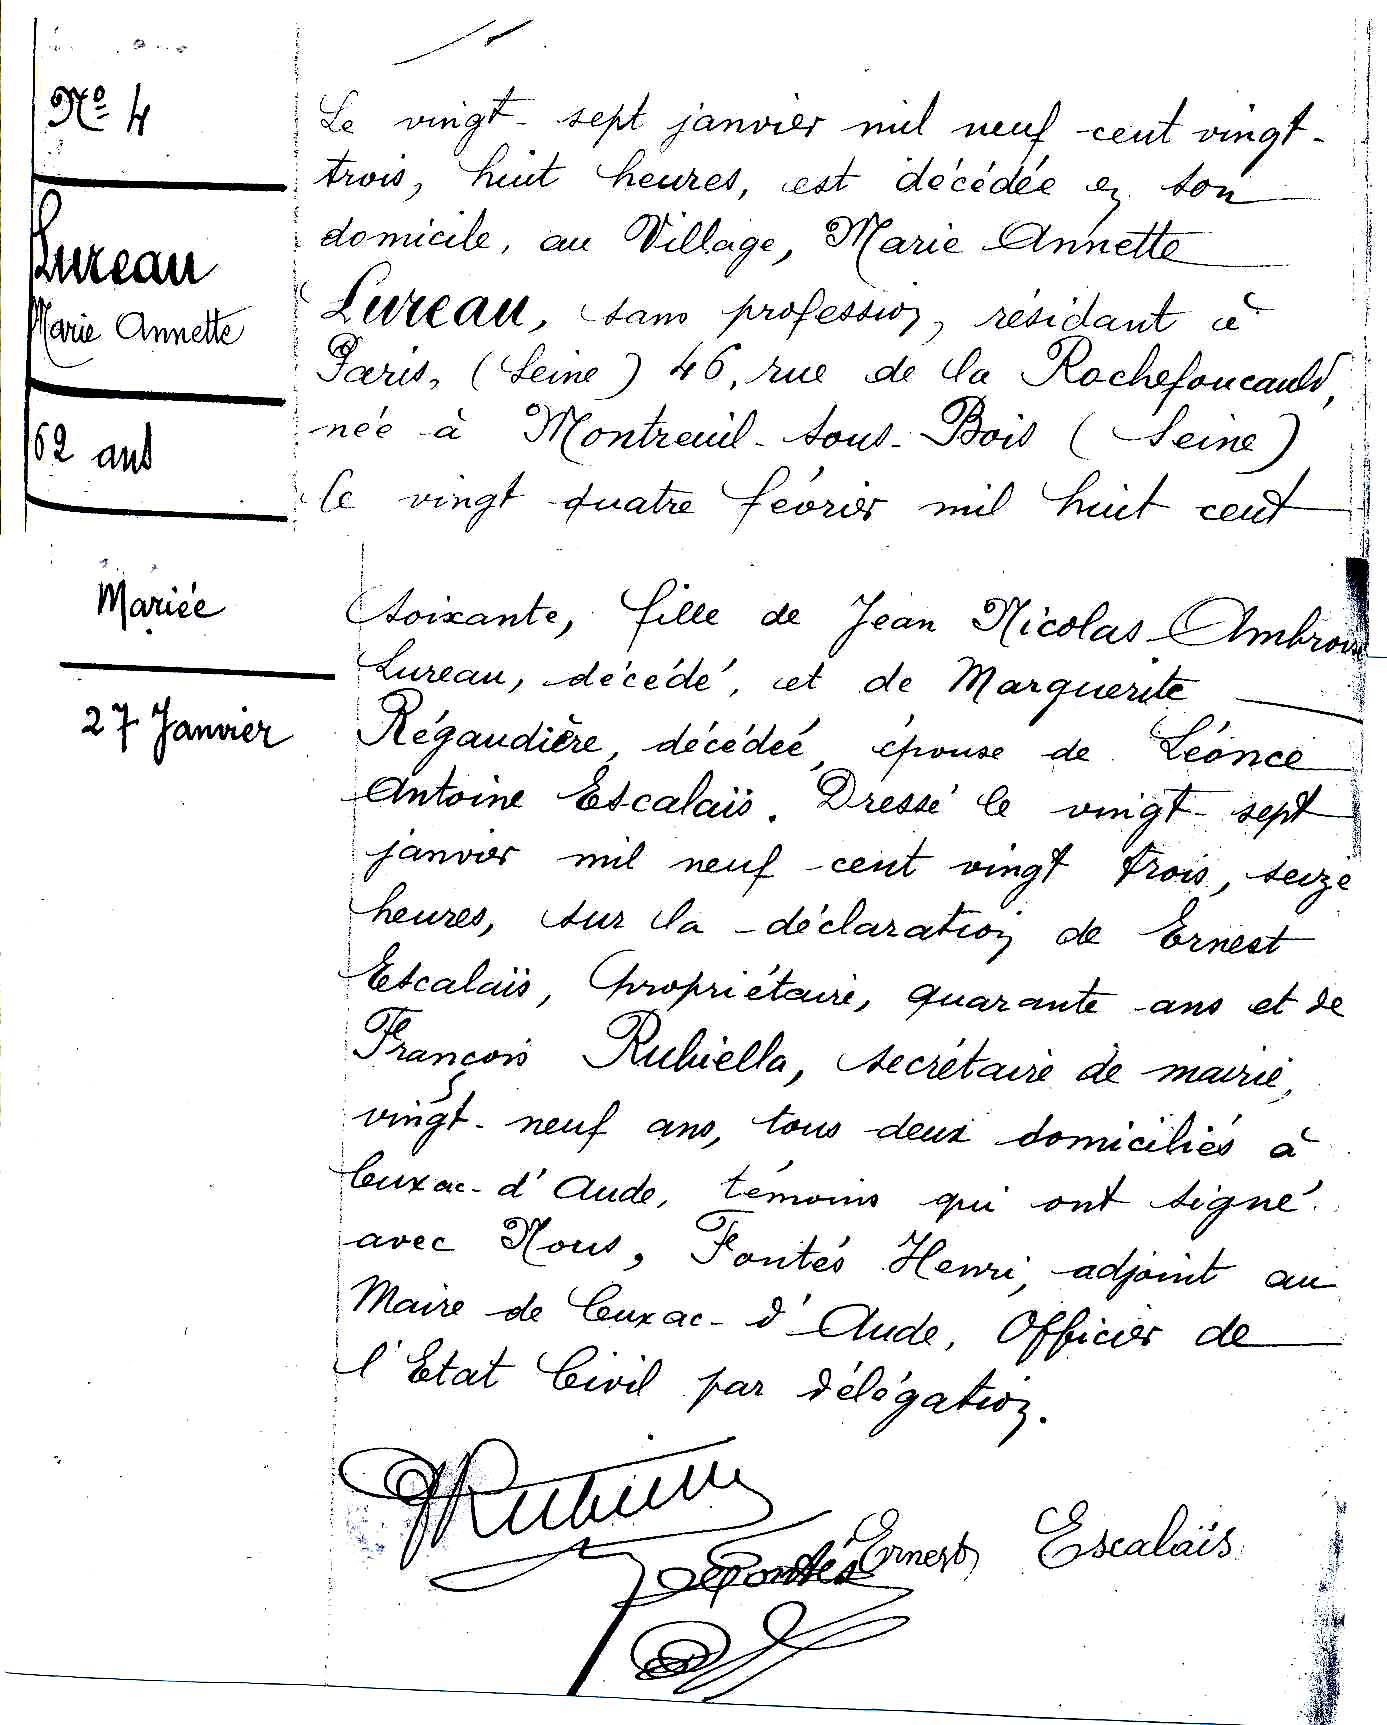 Nº 4
Lureau
Marie Annette
62 ans
Mariée
27 Janvier
Le vingt-sept janvier mil neuf cent vingt-
trois, huit heures, est décédée en son
domicile, au Village, Marie Annette
Lureau, sans profession, résidant à
Paris, (Seine) 46, rue de la Rochefoucauld,
née à Montreuil-sous-Bois (Seine)
le vingt quatre février mil huit cent
soixante, fille de Jean Nicolas Ambroise
Lureau, décédé, et de Marguerite
Régaudière, décédée, épouse de Léonce
Antoine Escalaïs. Dressé le vingt-sept
janvier mil neuf cent vingt trois, seize
heures, sur la déclaration de Ernest
Escalaïs, propriétaire, quarante ans et de
François Rubiella, secrétaire de mairie,
vingt-neuf ans, tous deux domiciliés à
Cuxac-d'Aude, témoins qui ont signé
avec Nous, Fontés Henri, adjoint au
Maire de Cuxac-d'Aude, Officier de
l'Etat Civil par délégation.
Rubiella
Fontés Ernest Escalaïs